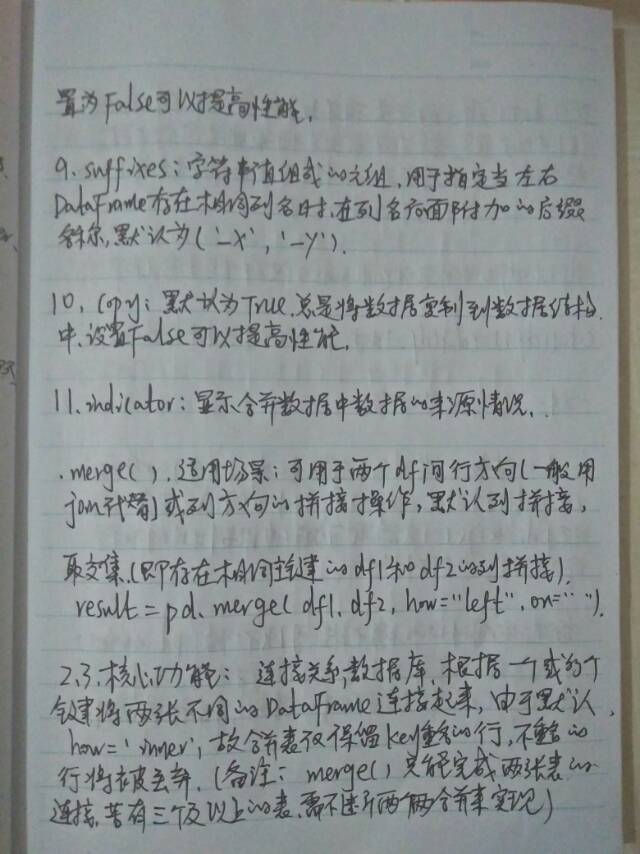 置为False可以提高性能。
9. suffixes:字符串值组成的元组,用于指定当左右
DataFrame存在相同列名时,在列名后面附加的后缀
名称,默认为('_X','_Y').
10. copy:默认为True.总是将数据复制到数据结构
中,设置False可以提高性能.
11. indicator:显示合并数据中数据的来源情况.
.merge().适用场景:可用于两个df间行方向(一般用
join代替)或列方向的拼接操作,默认列拼接,
取交集.(即存在相同主键的df1和df2的列拼接).
result=pd.merge(df1.df2,how="left",on=" ").
2.3.核心功能: 连接关系数据库.根据一个或多个
键将两张不同的DataFrame连接起来,由于默认
how='inner',故合并表仅保留key重叠的行,不重叠的
行将被丢弃.(备注:merge()只能完成两张表的
连接,若有三个及以上的表,需不断两两合并来实现)